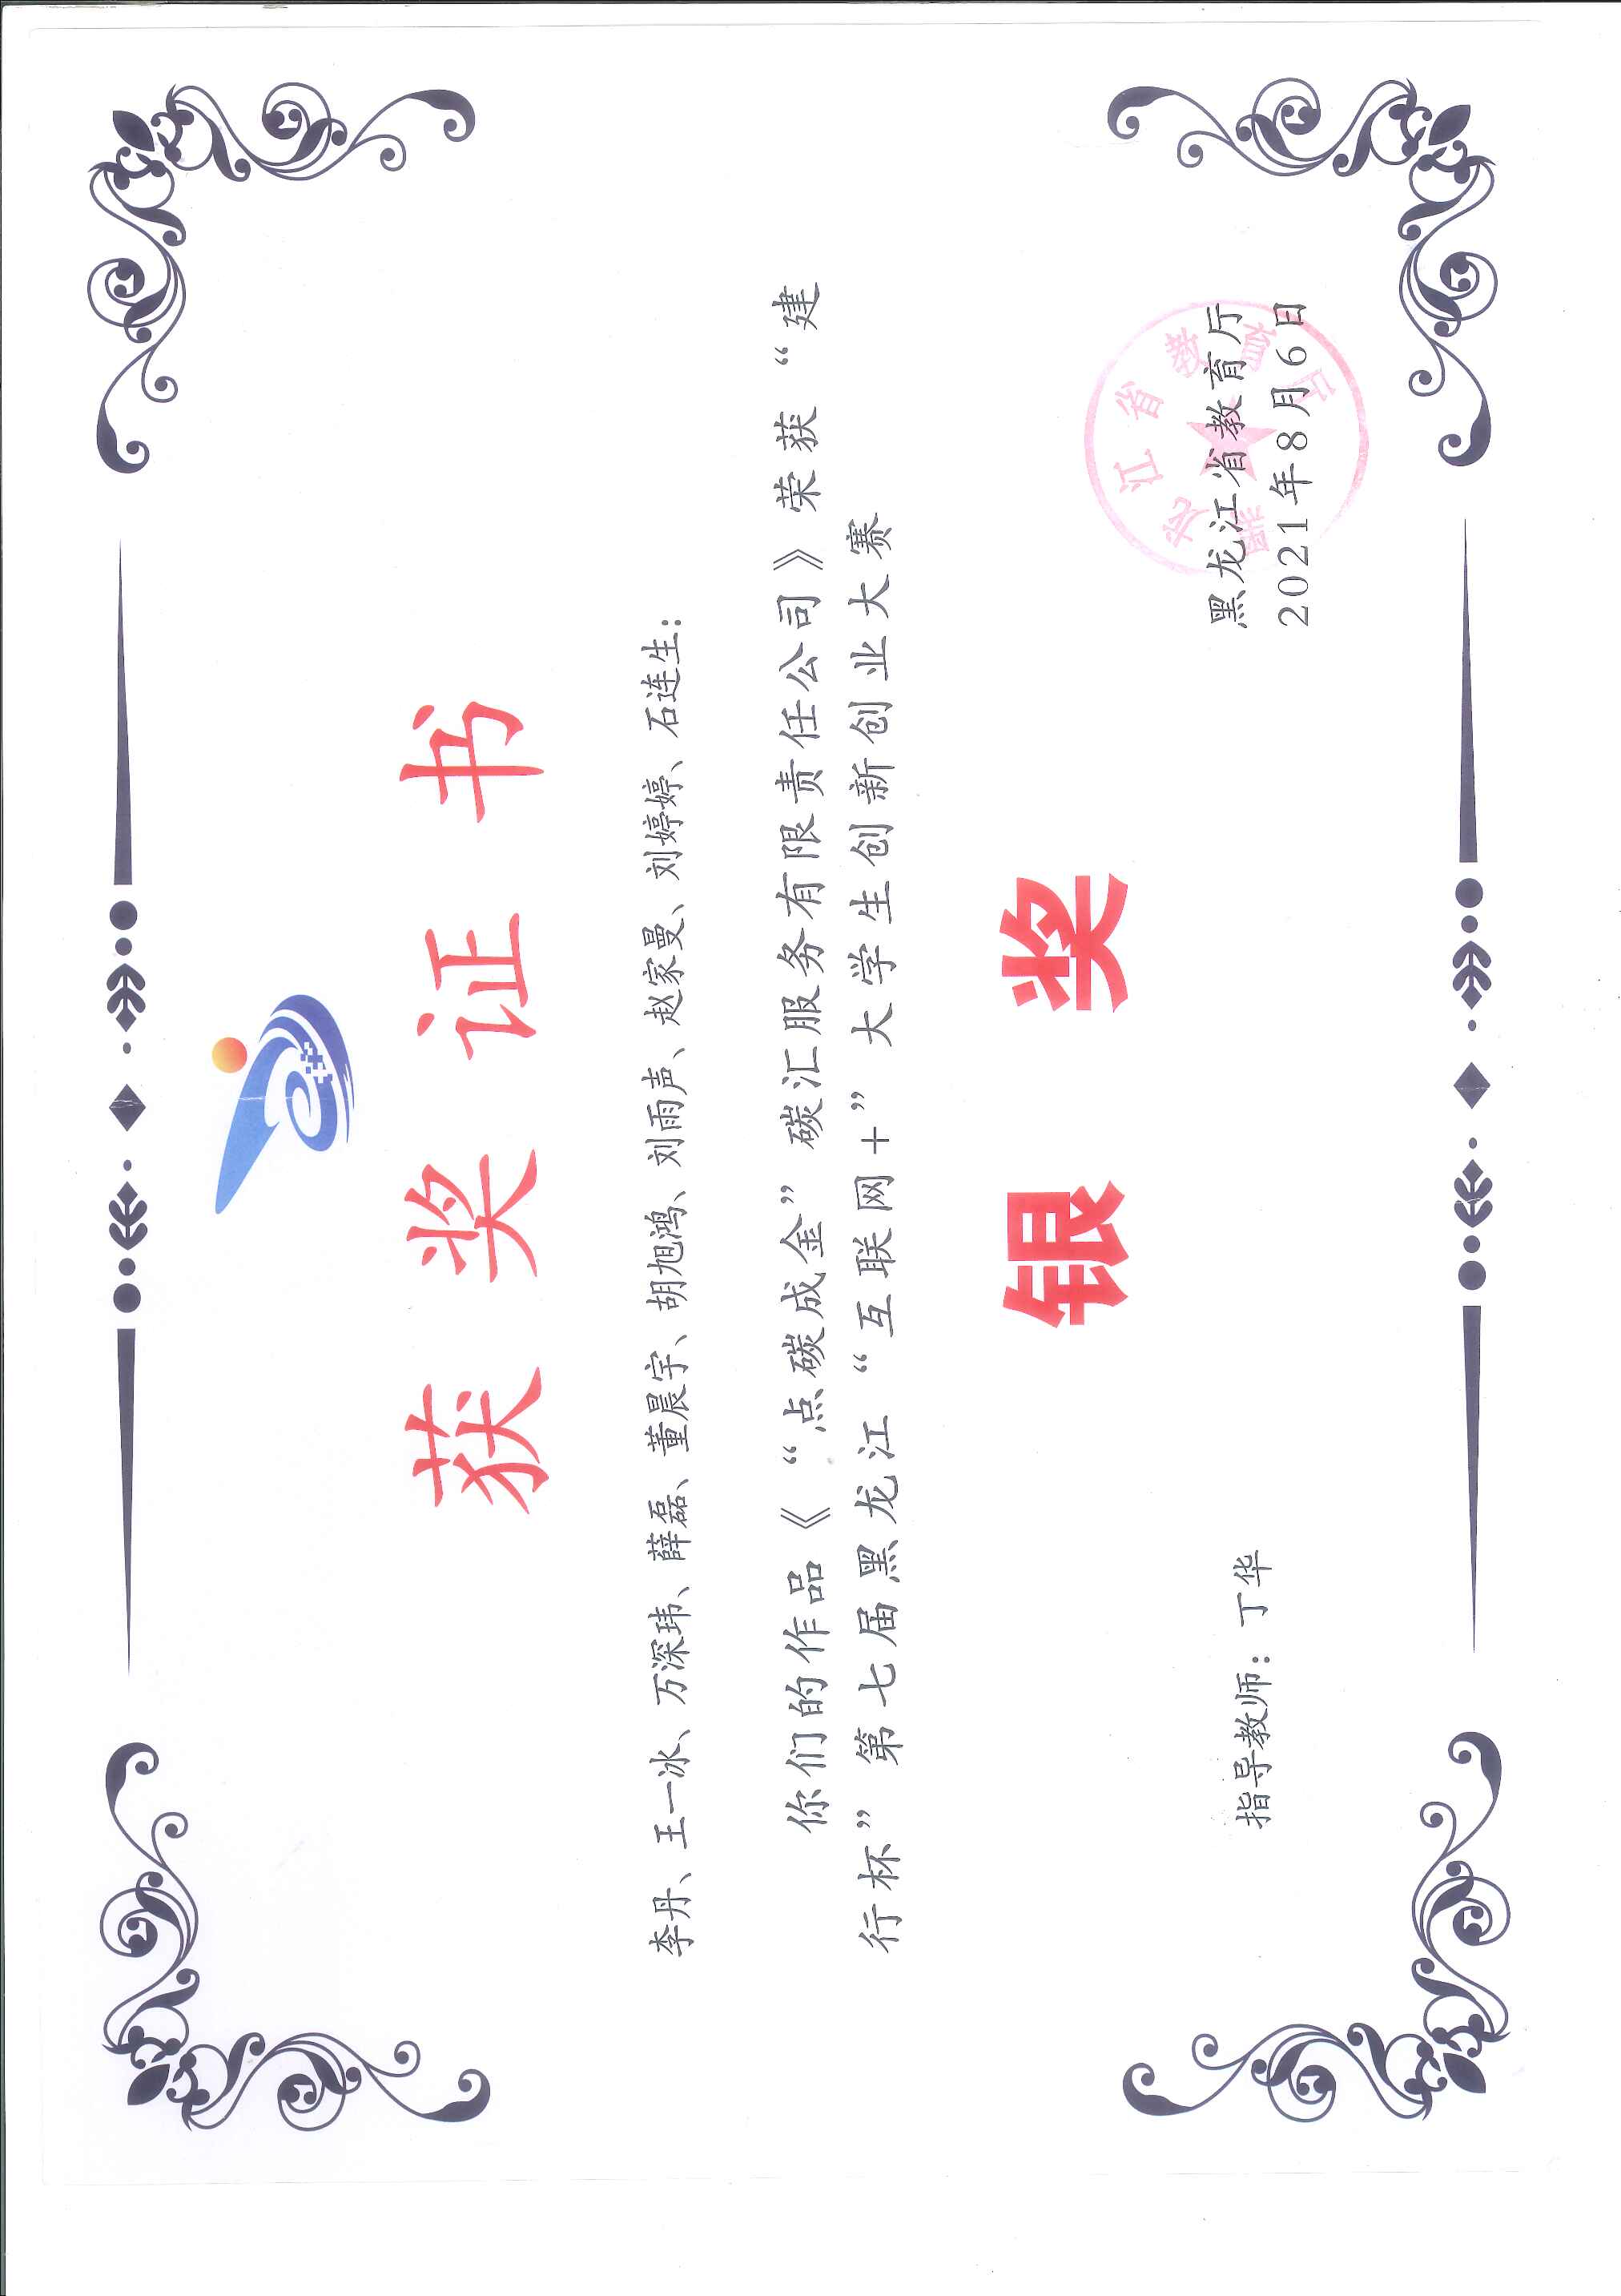 获奖证书
李丹、王一冰、万深玮、薛磊、董晨宇、胡旭鸿、刘雨声、赵家曼、刘婷婷、石连生：
你们的作品《“点碳成金”碳汇服务有限责任公司》荣获“建
行杯”第七届黑龙江“互联网+”大学生创新创业大赛
银奖
指导教师：丁华
黑龙江省教育厅
2021年8月6日
黑龙江省教育厅